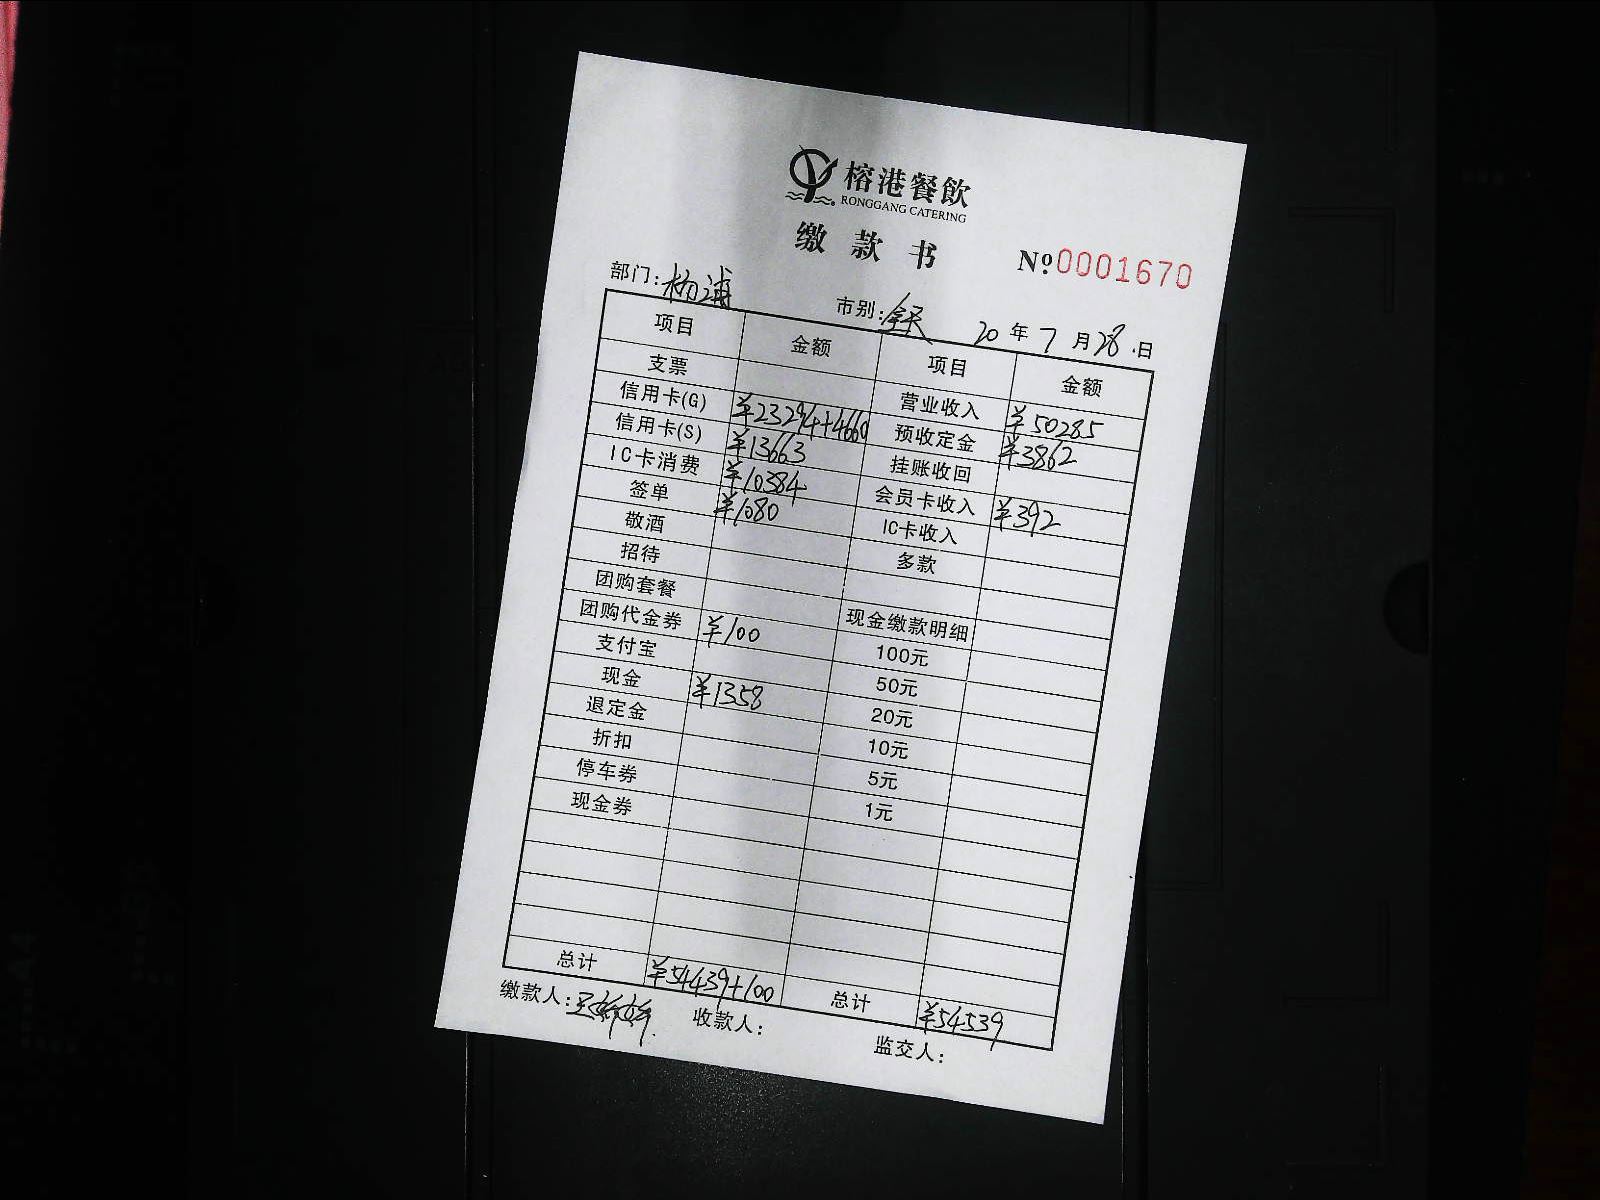 榕港餐飲
RONGGANG CATERING
缴款书 №0001670
部门:杨浦 市别:全天 20年7月28日
项目 金额 项目 金额
支票 营业收入 ¥50285
信用卡(G) ¥23294+4660 预收定金 ¥3862
信用卡(S) ¥13663 挂账收回
IC卡消费 ¥10384 会员卡收入 ¥392
签单 ¥1080 IC卡收入
敬酒 多款
招待
团购套餐 现金缴款明细
团购代金券 ¥100 100元
支付宝 50元
现金 ¥1358 20元
退定金 10元
折扣 5元
停车券 1元
现金券
总计 ¥54439+100 总计 ¥54539
缴款人: 收款人: 监交人: